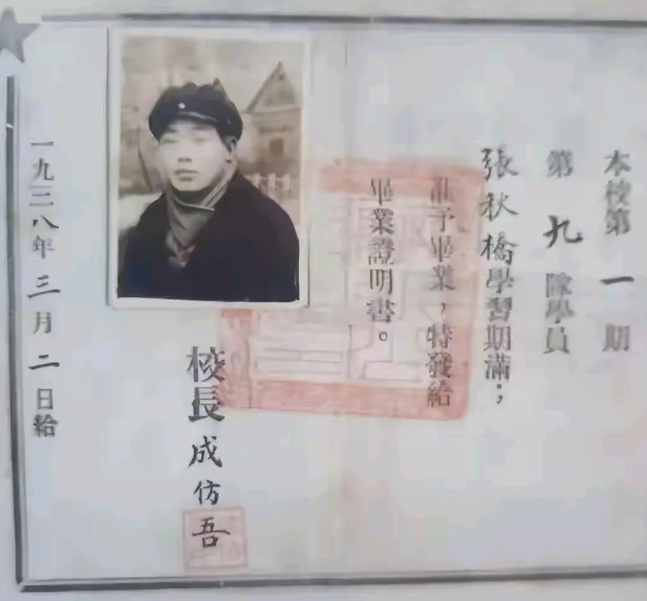 本校第一期
第九隊學員
張秋橋學習期滿；
准予畢業，特發給
畢業證明書。
校長成仿吾
一九三八年三月二日給